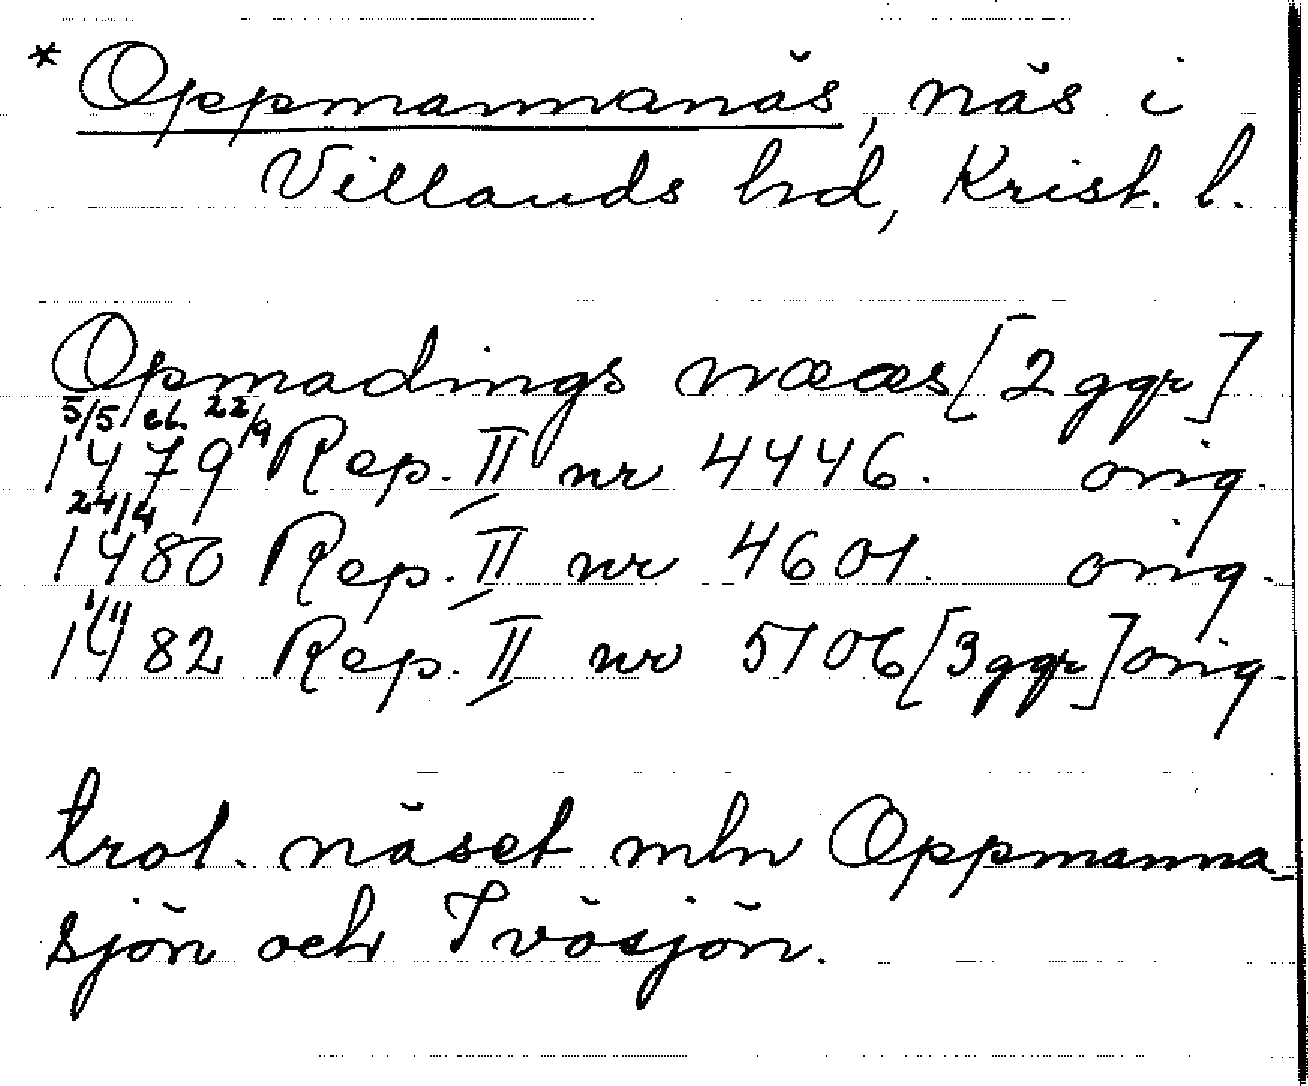 * Oppmannanäs, näs i
Villands hd, Krist. l.
Opmadings nææs [2 ggr]
5/5 et. 22/9
1479 Rep. II nr 4446. orig.
24/4
1480 Rep. II nr 4601. orig.
1/11
1482 Rep. II nr 5106 [3 ggr] orig.
trol. näset mln Oppmanna-
sjön och Ivösjön.